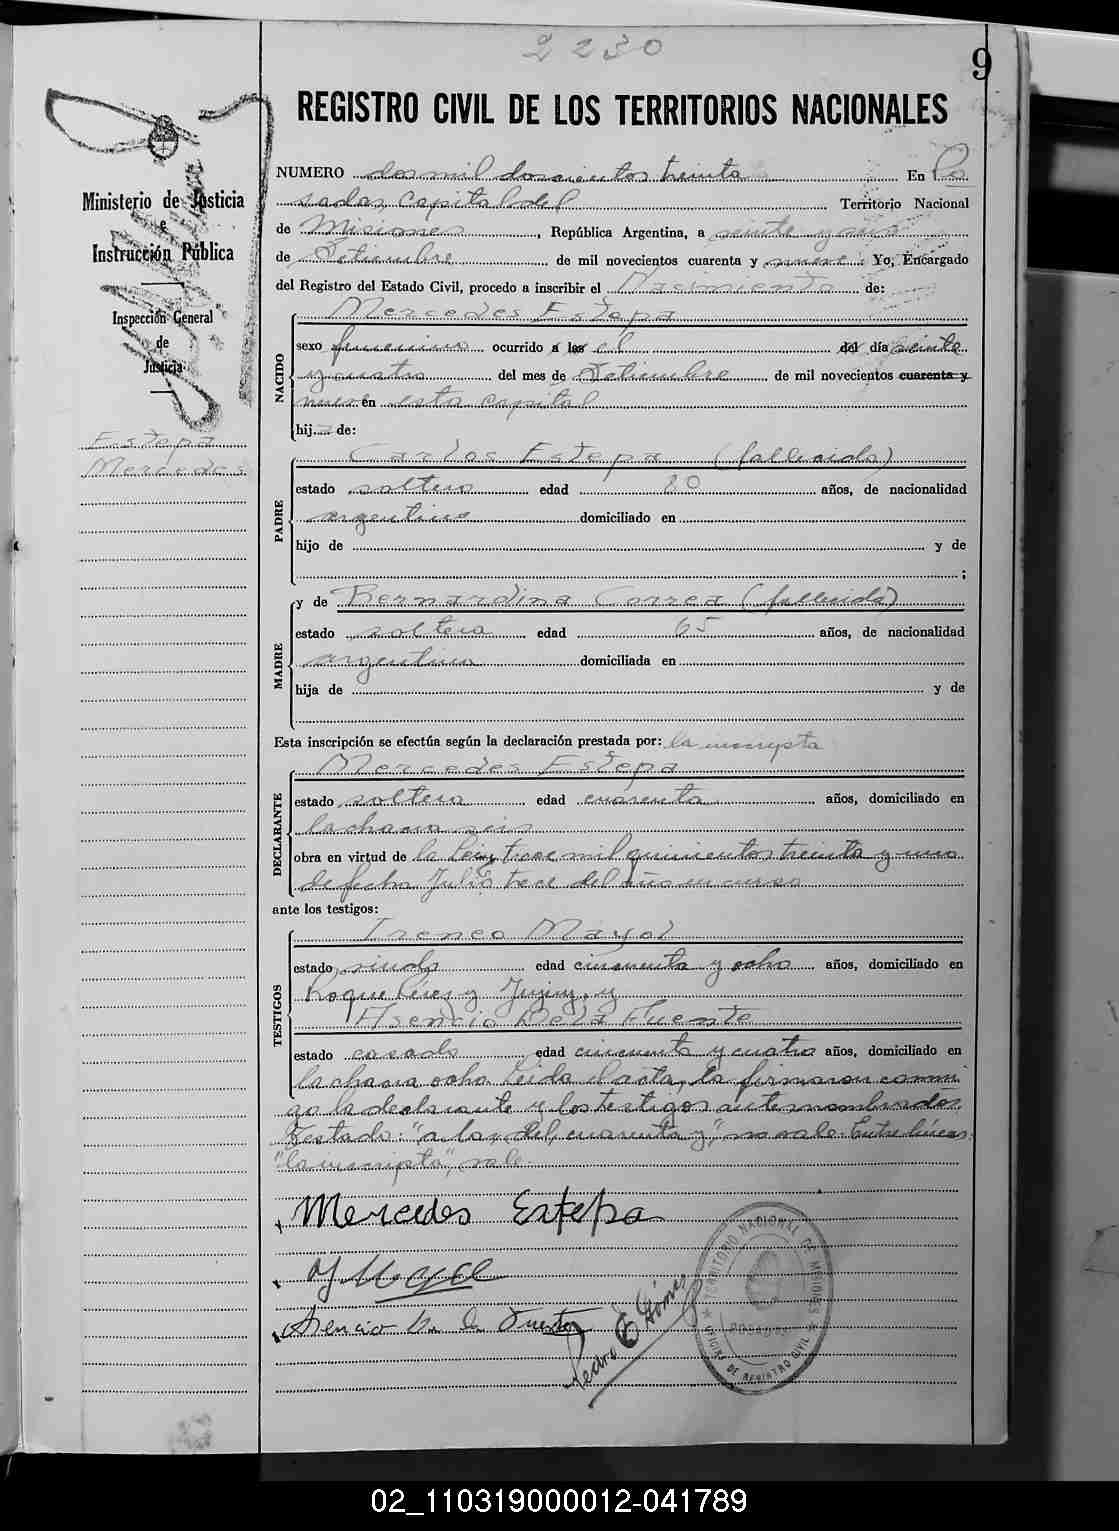 2230
9
REGISTRO CIVIL DE LOS TERRITORIOS NACIONALES
Ministerio de Justicia
e
Instrucción Pública
Inspección General
de
Justicia
Estepa
Mercedes
NUMERO dos mil doscientos treinta En Po
sadas, Capital del Territorio Nacional
de Misiones, República Argentina, a veinte y seis
de Setiembre de mil novecientos cuarenta y nueve Yo, Encargado
del Registro del Estado Civil, procedo a inscribir el Nacimiento de:
NACIDO
Mercedes Estepa
sexo femenino ocurrido a las el del día veinte
y cuatro del mes de Setiembre de mil novecientos cuarenta y
nueve en esta capital
hija de:
PADRE
Carlos Estepa (fallecido)
estado soltero edad 80 años, de nacionalidad
argentino domiciliado en
hijo de y de
;
MADRE
y de Bernardina Correa (fallecida)
estado soltera edad 65 años, de nacionalidad
argentina domiciliada en
hija de y de
Esta inscripción se efectúa según la declaración prestada por: la inscripta
DECLARANTE
Mercedes Estepa
estado soltera edad cuarenta años, domiciliado en
la chacra seis
obra en virtud de la Ley trece mil quinientos treinta y uno
de fecha Julio trece del año en curso
ante los testigos:
TESTIGOS
Ireneo Mayol
estado viudo edad cincuenta y ocho años, domiciliado en
Roque Pérez y Jujuy, y
Asencio De la Fuente
estado casado edad cincuenta y cuatro años, domiciliado en
la chacra ocho Leida el acta, la firmaron conmi
go la declarante y los testigos antes nombrados.
Testado: "a las, del, cuarenta y", no vale. Entre líneas:
"la inscripta", vale
Mercedes Estepa
Asencio De la Fuente
Pedro E Gómez
TERRITORIO NACIONAL DE MISIONES
POSADAS
OFICINA DE REGISTRO CIVIL
02_110319000012-041789